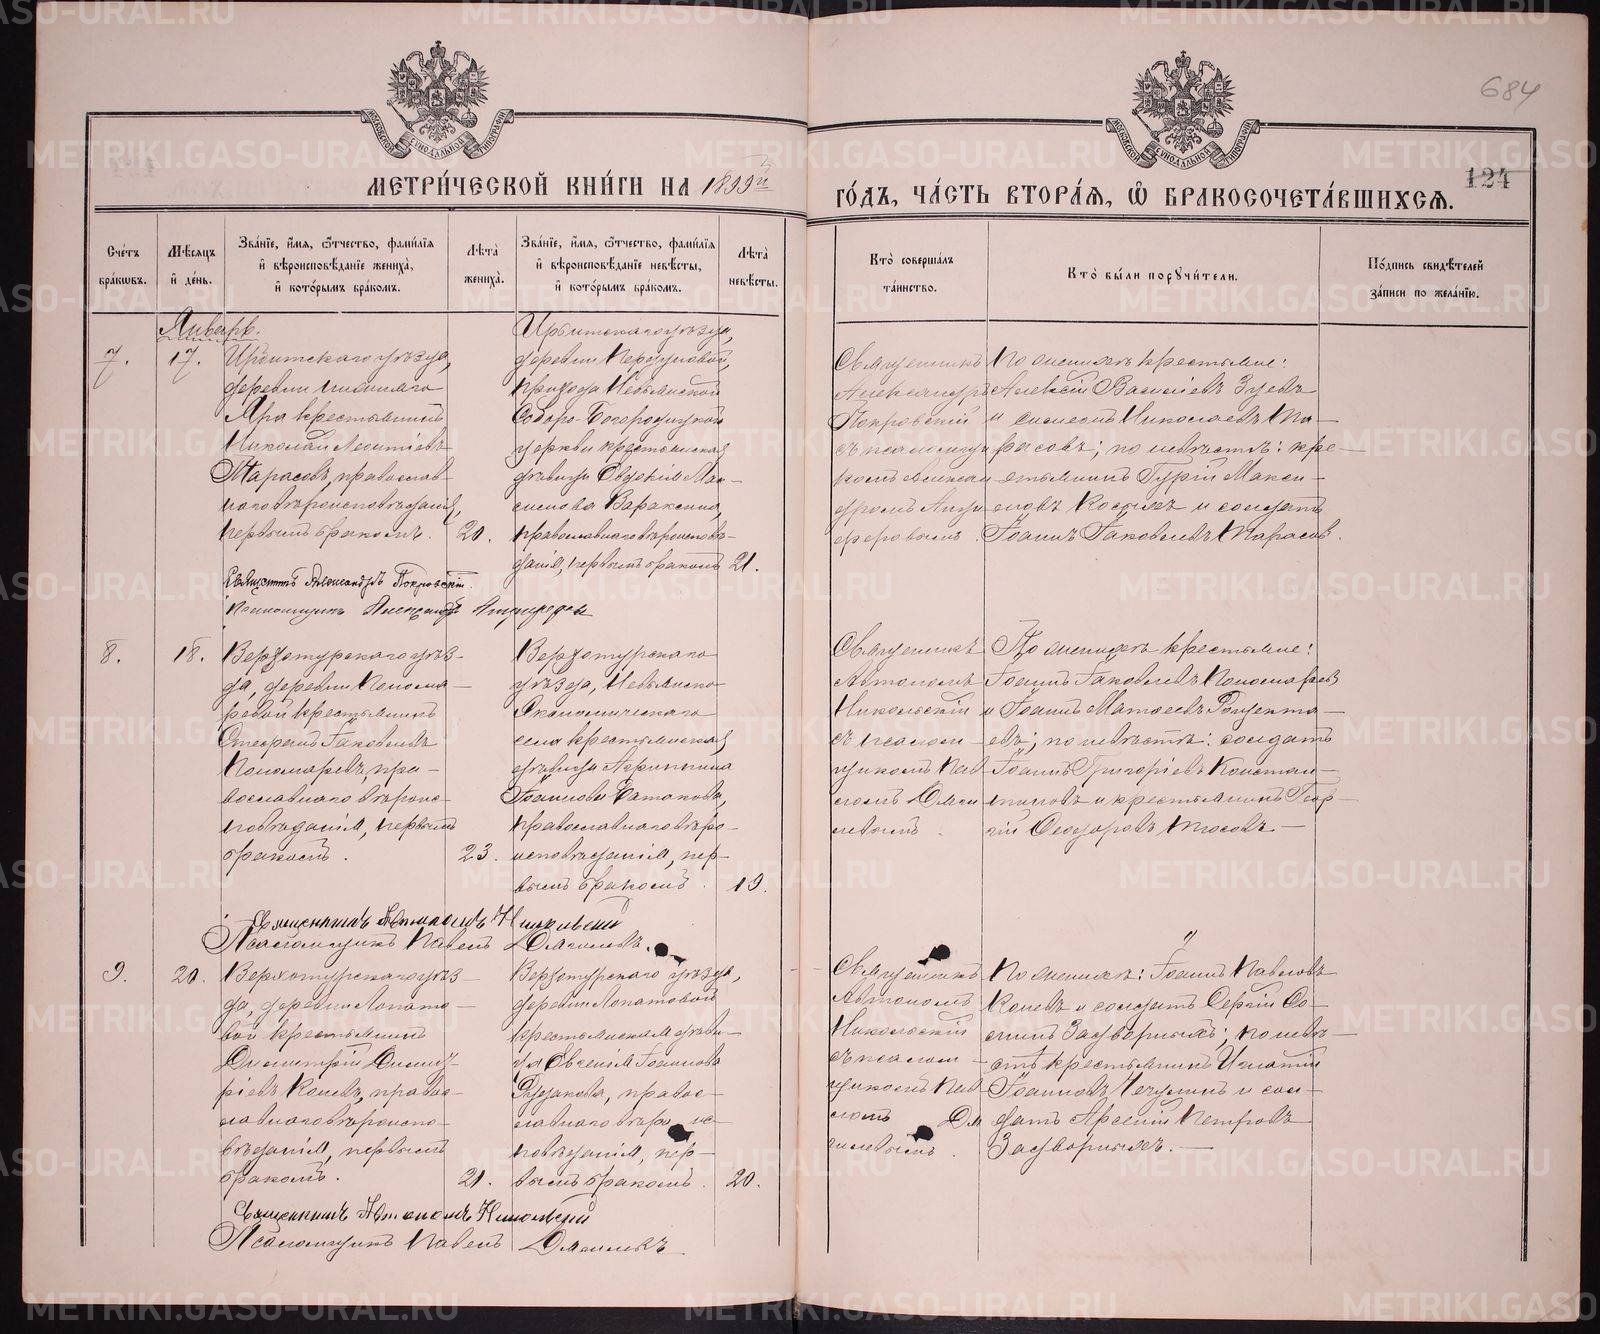 684
124
МОСКОВСКОЙ СѴНОДАЛЬНОЙ ТИПОГРАФІИ
МОСКОВСКОЙ СѴНОДАЛЬНОЙ ТИПОГРАФІИ
МЕТРИ́ЧЕСКОЙ КНИ́ГИ НА 1899й ГО́ДЪ, ЧА́СТЬ ВТОРА́Я, Ѽ БРАКОСОЧЕТА́ВШИХСЯ.
Сче́тъ бра́кѡвъ.
Мѣ́сяцъ и҆ де́нь.
Зва́нїе, и҆́мя, ѻ҆́тчество, фами́лїя и҆ вѣроисповѣ́данїе жениха̀, и҆ кото́рымъ бра́комъ.
Лѣ́та жениха̀.
Зва́нїе, и҆́мя, ѻ҆́тчество, фами́лїя и҆ вѣроисповѣ́данїе невѣ́сты, и҆ кото́рымъ бра́комъ.
Лѣ́та невѣ́сты.
Кто̀ соверша́лъ та́инство.
Кто̀ бы́ли порꙋчи́тели.
По́дпись свидѣ́телей за́писи по жела́нїю.
Январь.
7.
17.
Ирбитскаго уѣзда,
деревни Нижняго
Яра крестьянинъ
Николай Леонтіевъ
Тарасовъ, православ-
наго вѣроисповѣданія,
первымъ бракомъ.
20.
Ирбитскаго уѣзда,
деревни
прихода Невьянской
Соборо-Богородицкой
церкви крестьянская
дѣвица Евдокія Мак-
симова Ваксина,
православнаго вѣроисповѣ-
данія, первымъ бракомъ
21.
Священникъ
Александръ
Покровскій
съ псаломщи-
комъ Алексан-
дромъ Анци-
феровымъ.
По женихѣ крестьяне:
Алексій Василіевъ Зуевъ
и Николаевъ Та-
расовъ; по невѣстѣ: кре-
стьянинъ Гурій Макси-
мовъ и солдатъ
Іоаннъ Іаковлевъ Тарасов.
Священникъ Александръ Покровскій.
Псаломщикъ Александръ Анциферовъ
8.
18.
Верхотурскаго уѣз-
да, деревни Понома-
ревой крестьянинъ
Стефанъ Іаковлевъ
Пономаревъ, пра-
вославнаго вѣроис-
повѣданія, первымъ
бракомъ.
23.
Верхотурскаго
уѣзда, Невьянско-
Экономическаго
села крестьянская
дѣвица Агрипина
Іоаннова
православнаго вѣро-
исповѣданія, пер-
вымъ бракомъ.
19.
Священникъ
Автономъ
Никольскій
съ псалом-
щикомъ Пав-
ломъ
По женихѣ крестьяне:
Іоаннъ Іаковлевъ Пономаревъ
и Іоаннъ Матѳеевъ Рощекта-
евъ; по невѣстѣ: солдатъ
Іоаннъ Григоріевъ Констан-
тиновъ и крестьянинъ Геор-
гій Ѳеодоровъ
Священникъ Автономъ Никольскій
Псаломщикъ Павелъ
9.
20.
Верхотурскаго уѣз-
да, деревни Лопато-
вой крестьянинъ
Димитрій Димит-
ріевъ Коневъ, право-
славнаго вѣроиспо-
вѣданія, первымъ
бракомъ.
21.
Верхотурскаго уѣзда,
деревни Лопатовой
крестьянская дѣви-
ца Евгенія Іоаннова
Рудакова, право-
славнаго вѣроис-
повѣданія, пер-
вымъ бракомъ.
20.
Священникъ
Автономъ
Никольскій
съ псалом-
щикомъ Пав-
ломъ
По женихѣ: Іоаннъ Павловъ
Коневъ и солдатъ Сергій Со-
Задворныхъ; по невѣ-
стѣ крестьянинъ Игнатій
Іоанновъ и сол-
датъ Арсеній Петровъ
Задворныхъ.
Священникъ Автономъ Никольскій
Псаломщикъ Павелъ
METRIKI.GASO-URAL.RU